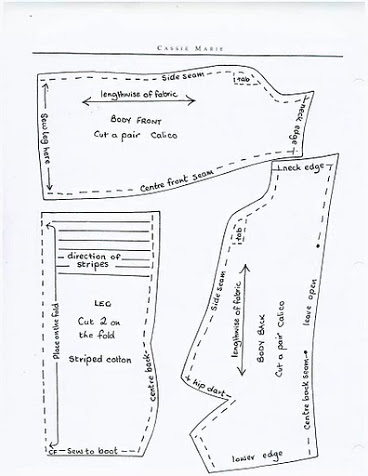 CASSIE MARIE
Side seam
tab
lengthwise of fabric
BODY FRONT
Cut a pair Calico
Sew leg here
neck edge
Centre front seam
neck edge
tab
Side seam
lengthwise of fabric
BODY BACK
Cut a pair Calico
leave open
Centre back seam
hip dart
lower edge
direction of
stripes
LEG
Cut 2 on
the fold
Striped cotton
Place on the fold
centre back
CF
Sew to boot